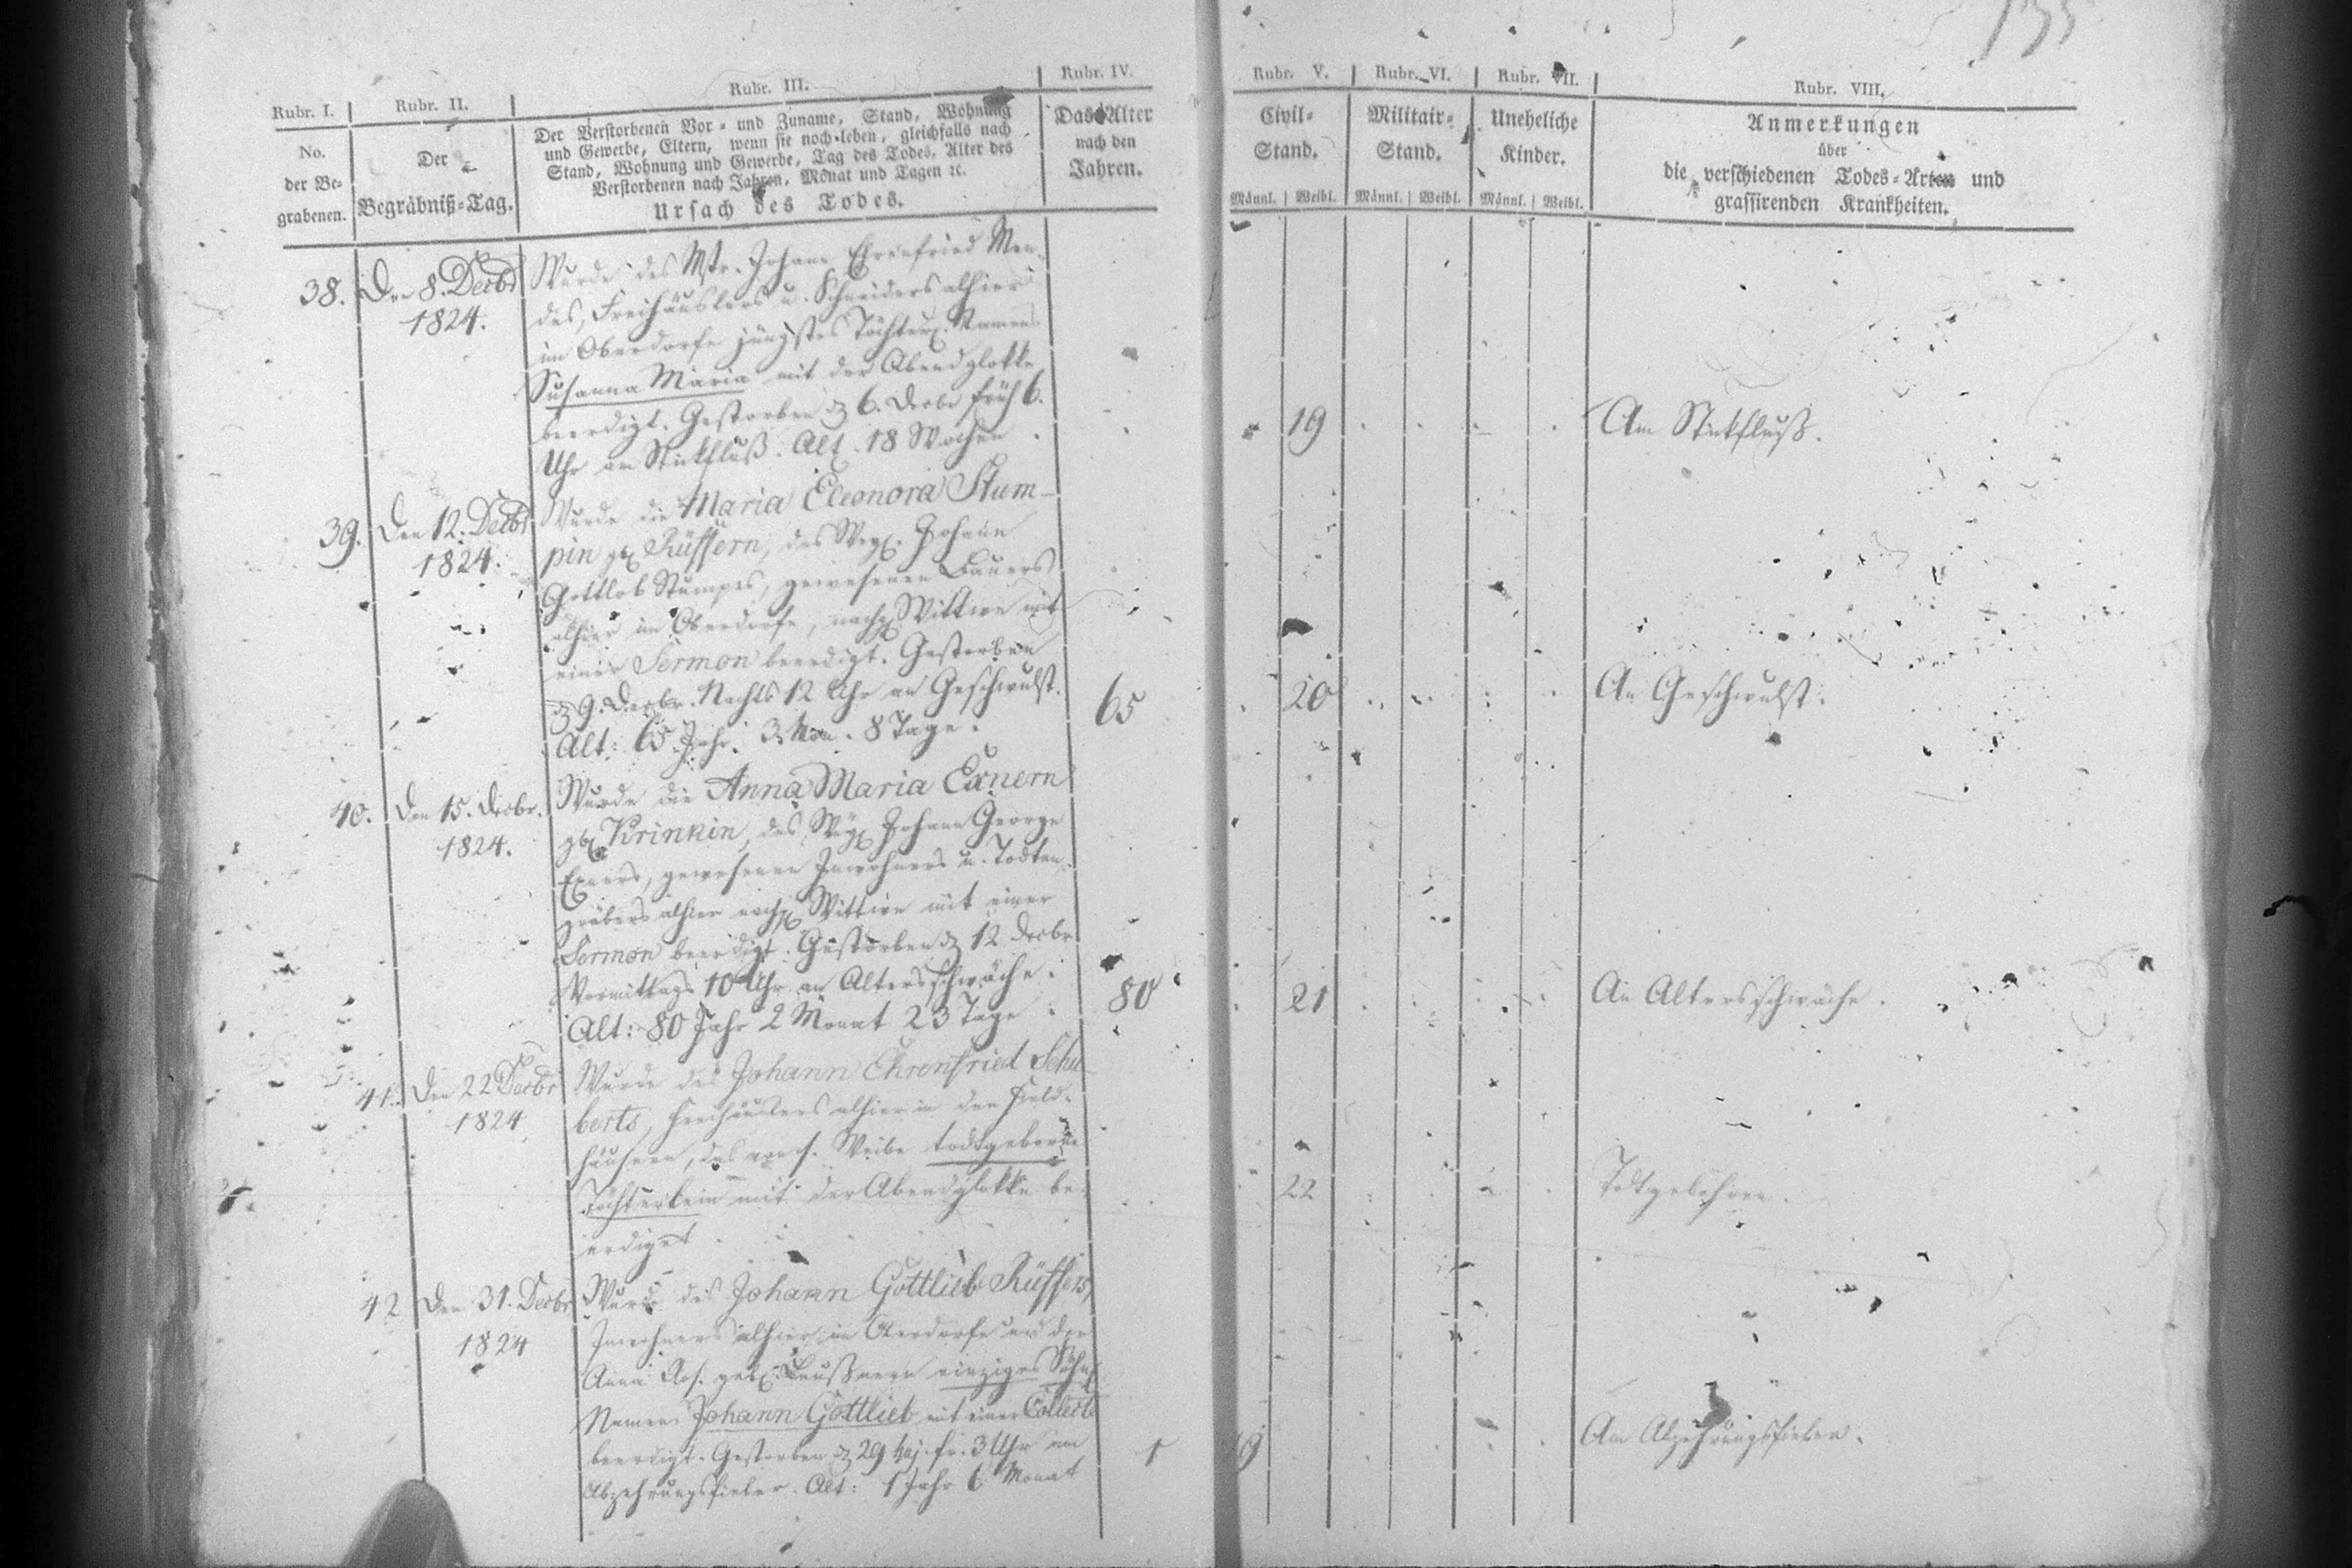 135
Rubr. I.
Rubr. II.
Rubr. III.
Rubr. IV.
Rubr. V.
Rubr. VI.
Rubr. VII.
Rubr. VIII.
No.
der Be-
grabenen.
Der
Begräbniß-Tag.
Der Verstorbenen Vor- und Zuname, Stand, Wohnung
und Gewerbe, Eltern, wenn sie noch leben, gleichfalls nach
Stand, Wohnung und Gewerbe, Tag des Todes, Alter des
Verstorbenen nach Jahren, Monat und Tagen ꝛc.
Ursach des Todes.
Das Alter
nach den
Jahren.
Civil-
Stand.
Männl. | Weibl.
Militair-
Stand.
Männl. | Weibl.
Uneheliche
Kinder.
Männl. | Weibl.
Anmerkungen
über
die verschiedenen Todes-Arten und
grassirenden Krankheiten.
38.
Den 8. Decbr
1824.
Wurde des Mstr. Johann Ehrenfried Men-
des, Freihäuslers u. Schneiders alhier
im Oberdorfe jüngstes Töchterl. Namens
Susanna Maria mit der Abendglokke
beerdigt. Gestorben 6. Decbr früh 6.
Uhr am Stickfluß. Alt. 18 Wochen.
19
Am Stickfluß.
39.
Den 12. Decbr
1824.
Wurde die Maria Eleonora Stum-
pin geb. Rüffern, des Johann
Gottlob Stumpes, gewesenen Bauers
alhier im Oberdorfe, Wittwe mit
einer Sermon beerdigt. Gestorben
9. Decbr. Nachts 12 Uhr an Geschwulst.
Alt: 65 Jahr. 3. Mon. 8 Tage.
65
20
An Geschwulst.
40.
Den 15. Decbr.
1824.
Wurde die Anna Maria Exnern
geb. Krinkin, des Johann George
Exners, gewesenen Inwohners u. Todten-
gräbers alhier Wittwe mit einer
Sermon beerdigt. Gestorben 12 Decbr
Vormittags 10 Uhr an Altersschwäche.
Alt: 80 Jahr 2 Monat 23 Tage.
80
21
An Altersschwäche.
41.
Den 22 Decbr
1824
Wurde des Johann Ehrenfried Schu-
berts, Freihäuslers alhier in den Feld-
häusern, das von s. Weibe todtgeborne
Töchterlein mit der Abendglokke be-
erdiget.
22
Todtgebohren.
42
Den 31. Decbr
1824
Wurde des Johann Gottlieb Rüffers,
Inwohners alhier im und der
Anna Ros. geb. einziges Söhnl.
Namens Johann Gottlieb mit einer Collecte
beerdigt. Gestorben 29 fr. 3 Uhr am
Abzehrungsfieber. Alt: 1 Jahr 6 Monat
1
19
Am Abzehrungsfieber.